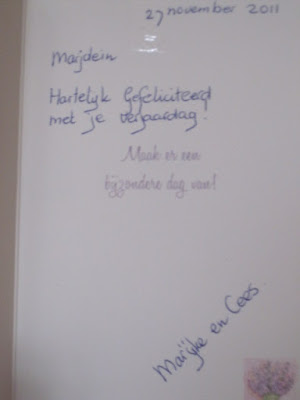 27 november 2011
Marjolein
Hartelijk Gefeliciteerd
met je verjaardag!
Maak er een
bijzondere dag van!
Marijke en Cees